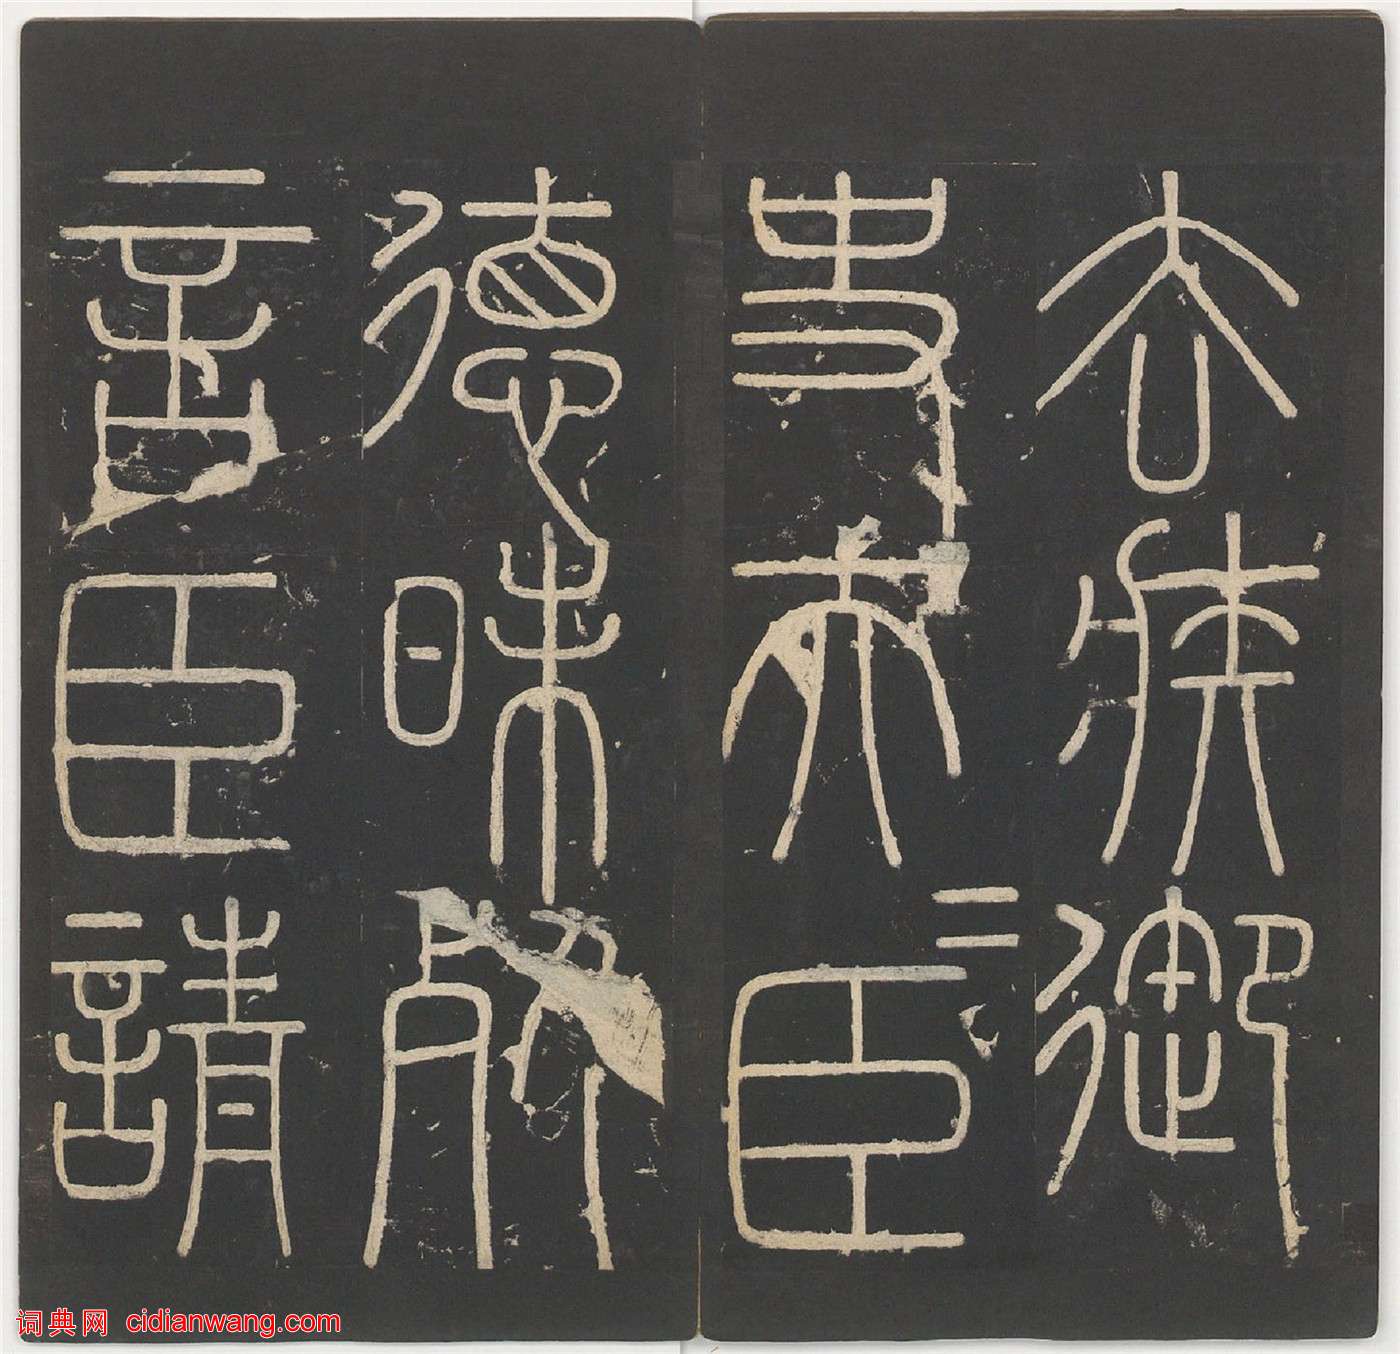 去疾御
史夫=臣
德昧死
言臣請
词典网 cidianwang.com